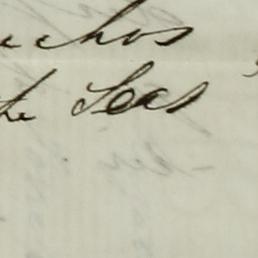 uchos
the Seas